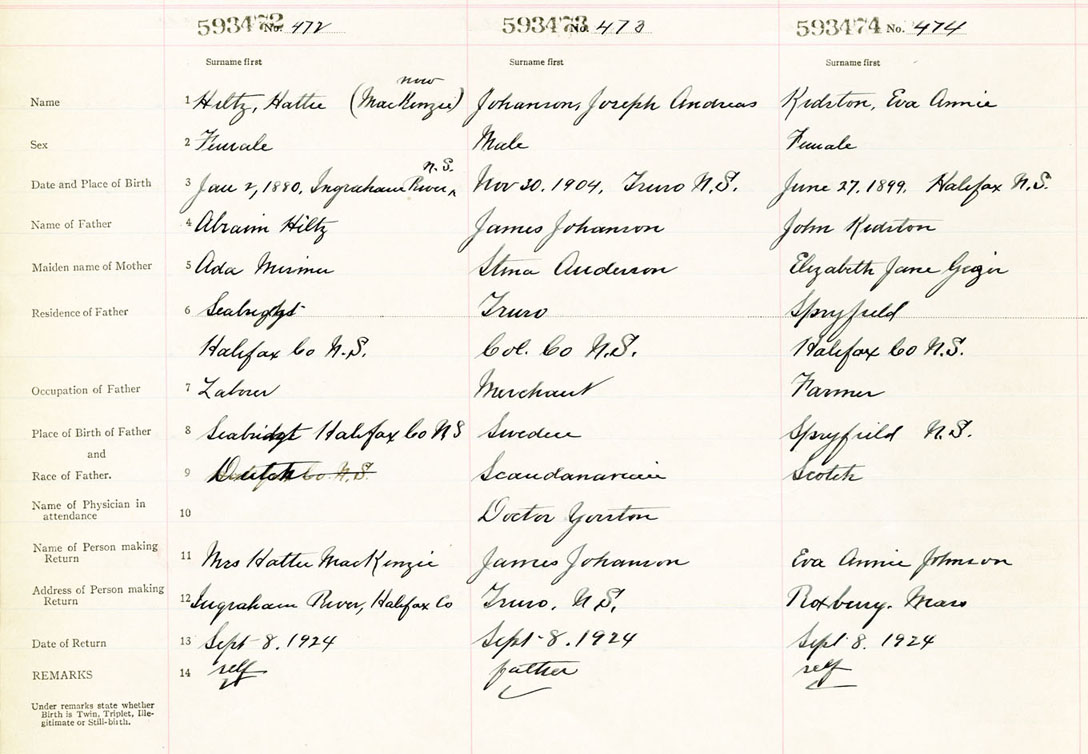 593472 No. 472 593473 No. 473 593474 No. 474
Surname first Surname first Surname first
now
Name 1 Hiltz, Hattie (MacKenzie) Johanson, Joseph Andreas Kidston, Eva Annie
Sex 2 Female Male Female
N.S.
Date and Place of Birth 3 Jan 2, 1880, Ingraham River Nov 30. 1904, Truro N.S. June 27. 1899. Halifax N.S.
Name of Father 4 Hiltz James Johanson John Kidston
Maiden name of Mother 5 Ada Stina Anderson Elizabeth Jane
Residence of Father 6 Seabright Truro Spryfield
Halifax Co N.S. Col. Co N.S. Halifax Co N.S.
Occupation of Father 7 Labour Merchant Farmer
Place of Birth of Father 8 Seabridgt Halifax Co N S Sweden Spryfield N.S.
and
Race of Father. 9 Dutch Co. N.S. Scandanavian Scotch
Name of Physician in
attendance 10 Doctor Yorston
Name of Person making
Return 11 Mrs Hattie MacKenzie James Johanson Eva Annie Johnson
Address of Person making
Return 12 Ingraham River, Halifax Co Truro, N.S. Roxbury. Mass
Date of Return 13 Sept 8. 1924 Sept 8. 1924 Sept 8. 1924
REMARKS 14 self father self
Under remarks state whether
Birth is Twin, Triplet, Ille-
gitimate or Still-birth.